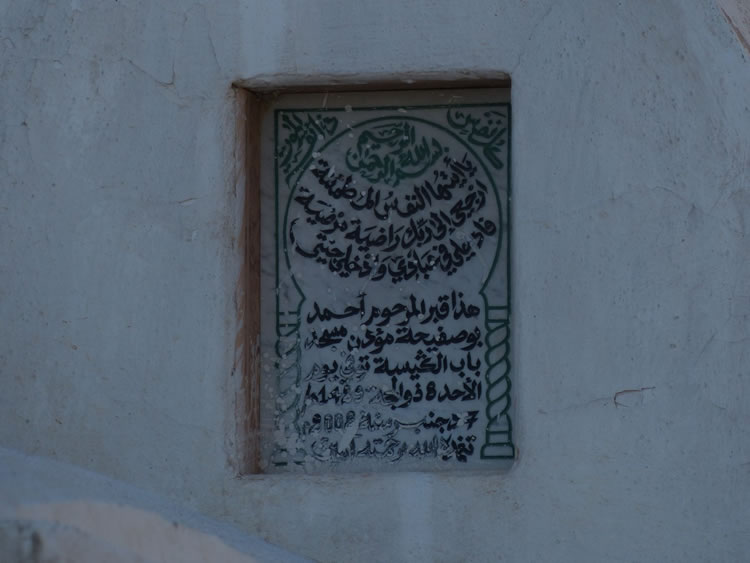 كل نفس
ذائقة الموت
بسم الله الرحمن الرحيم
يا أيتها النفس المطمئنة
ارجعي إلى ربك راضية مرضية
فادخلي في عبادي وادخلي جنتي
هذا قبر المرحوم أحمد
بوصفيحة مؤذن مسجد
باب الكيسة توفي يوم
الأحد 8 ذو الحجة
7 دجنبر
تغمده الله برحمته